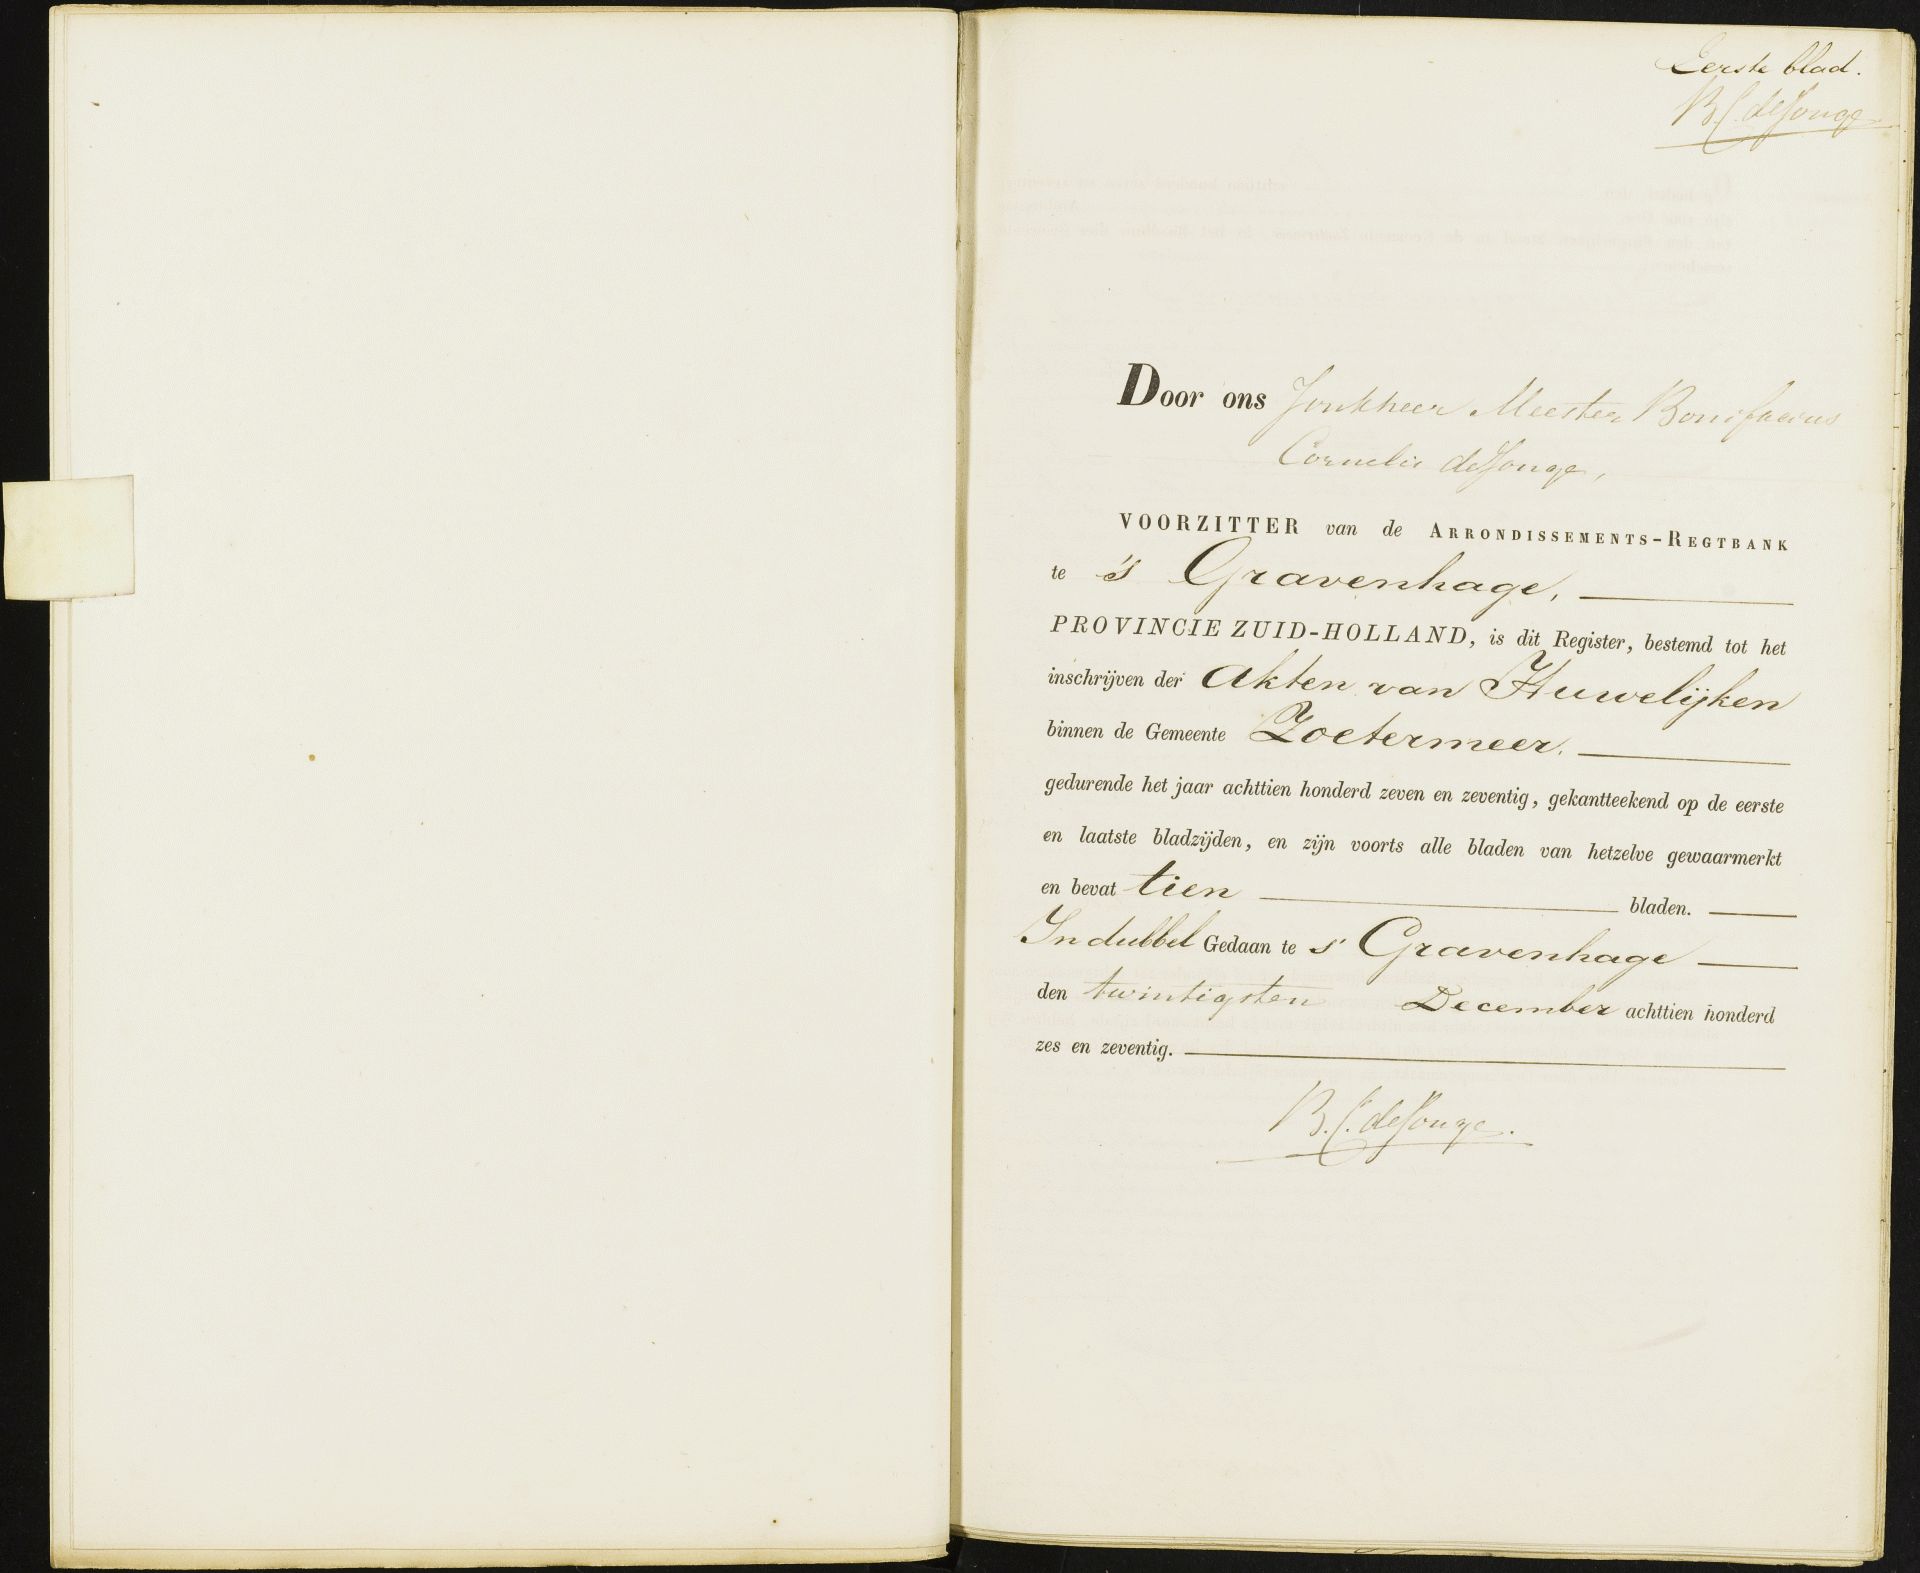 Eerste blad.
B.C. de Jonge
Door ons Jonkheer Meester Bonifacius
Cornelis de Jonge,
VOORZITTER van de ARRONDISSEMENTS-REGTBANK
te 's Gravenhage,
PROVINCIE ZUID-HOLLAND, is dit Register, bestemd tot het
inschrijven der Akten van Huwelijken
binnen de Gemeente Zoetermeer.
gedurende het jaar achttien honderd zeven en zeventig, gekantteekend op de eerste
en laatste bladzijden, en zijn voorts alle bladen van hetzelve gewaarmerkt
en bevat tien bladen.
In dubbel Gedaan te s' Gravenhage
den twintigsten December achttien honderd
zes en zeventig.
B.C. de Jonge.